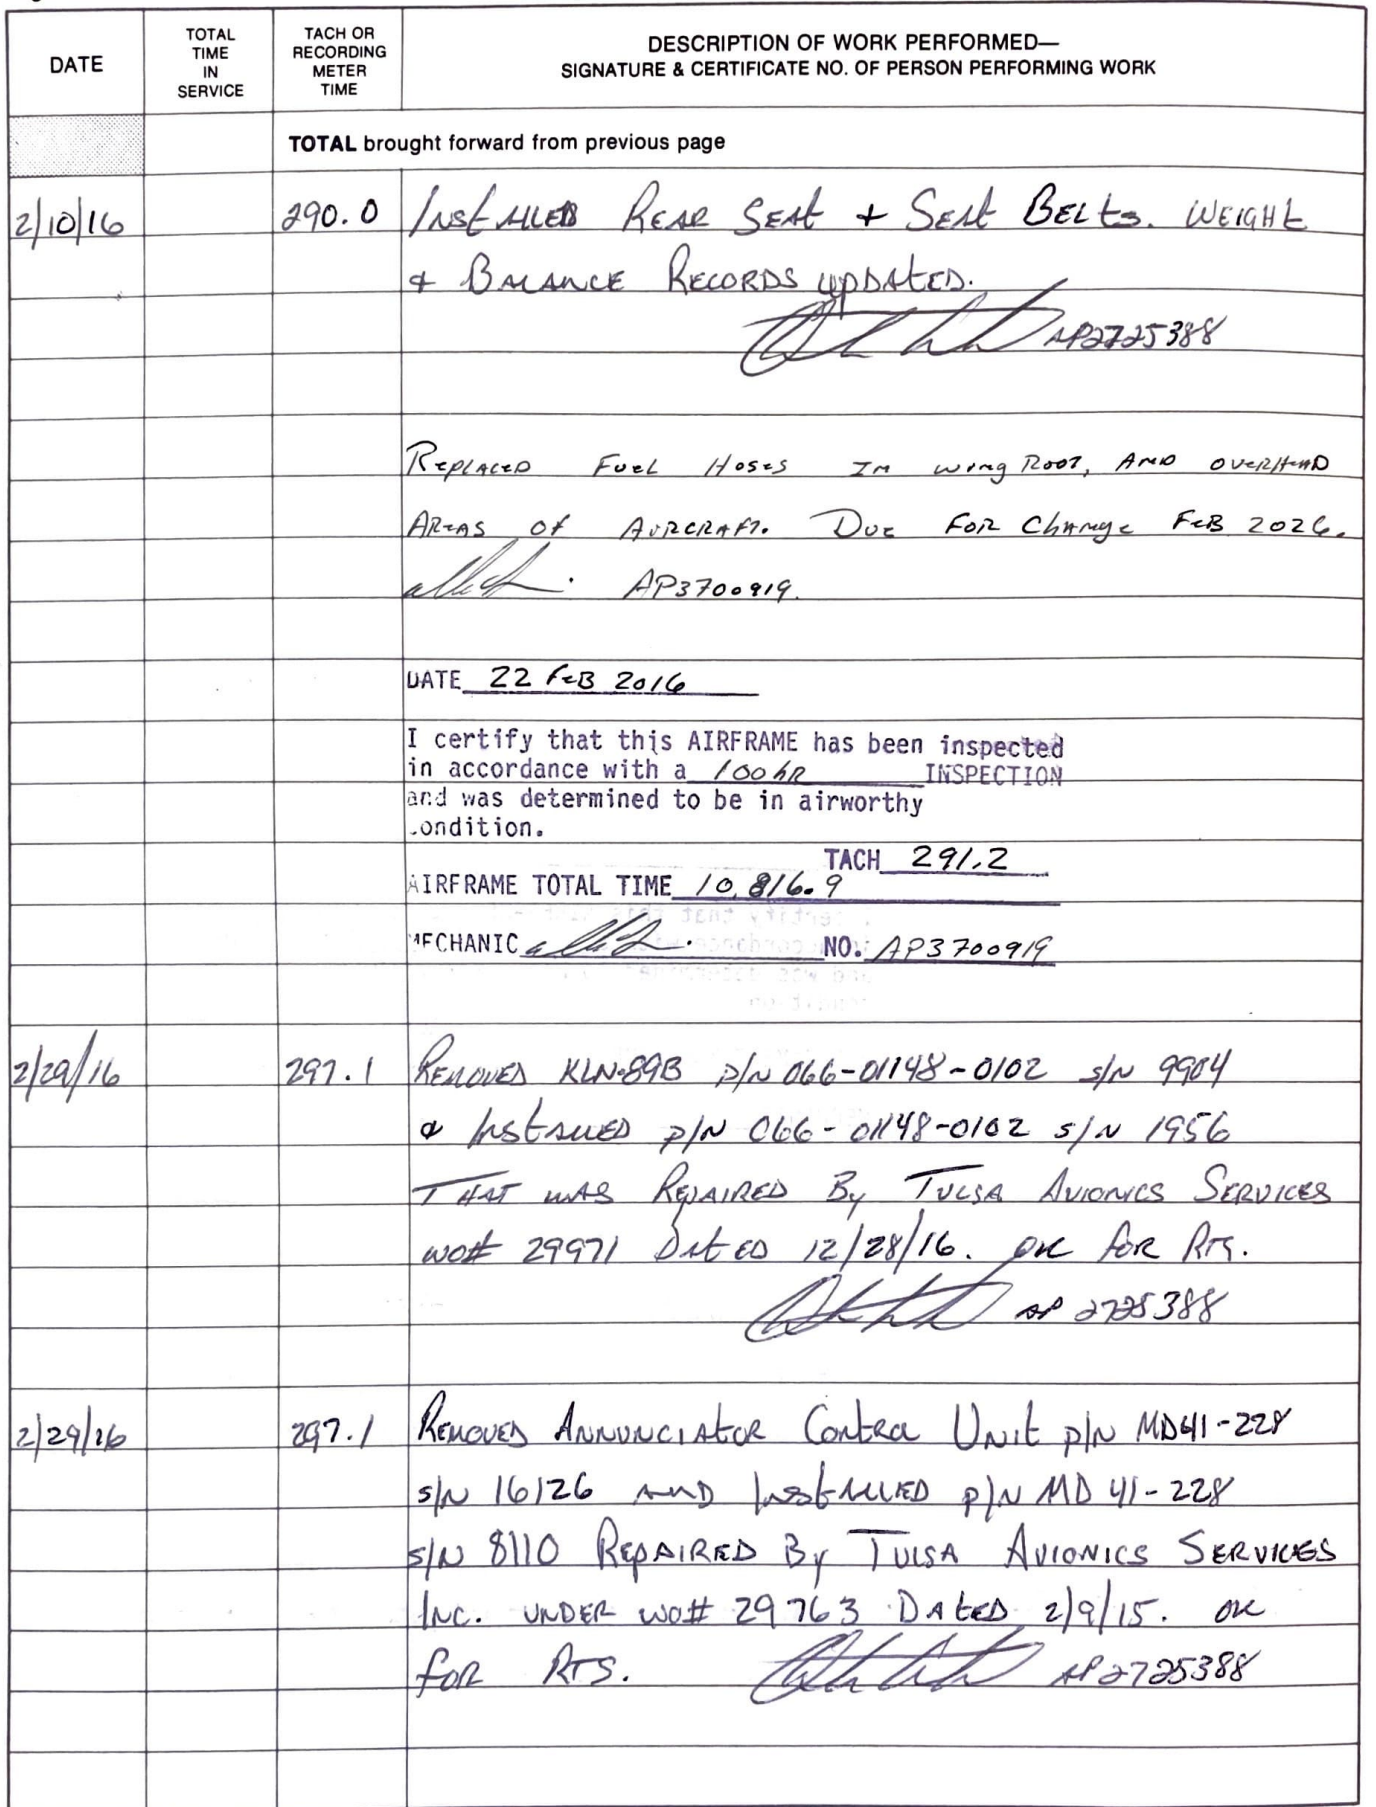 DATE
TOTAL TIME IN SERVICE
TACH OR RECORDING METER TIME
DESCRIPTION OF WORK PERFORMED—
SIGNATURE & CERTIFICATE NO. OF PERSON PERFORMING WORK
TOTAL brought forward from previous page
2/10/16 290.0 INSTALLED REAR SEAT + SEAT BELTS. WEIGHT
& BALANCE RECORDS UPDATED.
AP2725388
REPLACED FUEL HOSES IN WING ROOT, AND OVERHEAD
AREAS OF AIRCRAFT. DUE FOR CHANGE FEB 2026.
AP3700919.
DATE 22 FEB 2016
I certify that this AIRFRAME has been inspected
in accordance with a 100 hR INSPECTION
and was determined to be in airworthy
condition.
TACH 291.2
AIRFRAME TOTAL TIME 10,816.9
MECHANIC NO. AP3700919
2/29/16 297.1 REMOVED KLN-89B P/N 066-01148-0102 S/N 9904
& INSTALLED P/N 066-01148-0102 S/N 1956
THAT WAS REPAIRED BY TULSA AVIONICS SERVICES
WO# 29971 DATED 12/28/16. OK FOR RTS.
AP 2725388
2/29/16 297.1 REMOVED ANNUNCIATOR CONTROL UNIT P/N MD41-228
S/N 16126 AND INSTALLED P/N MD 41-228
S/N 8110 REPAIRED BY TULSA AVIONICS SERVICES
INC. UNDER WO# 29763 DATED 2/9/15. OK
FOR RTS. AP2725388